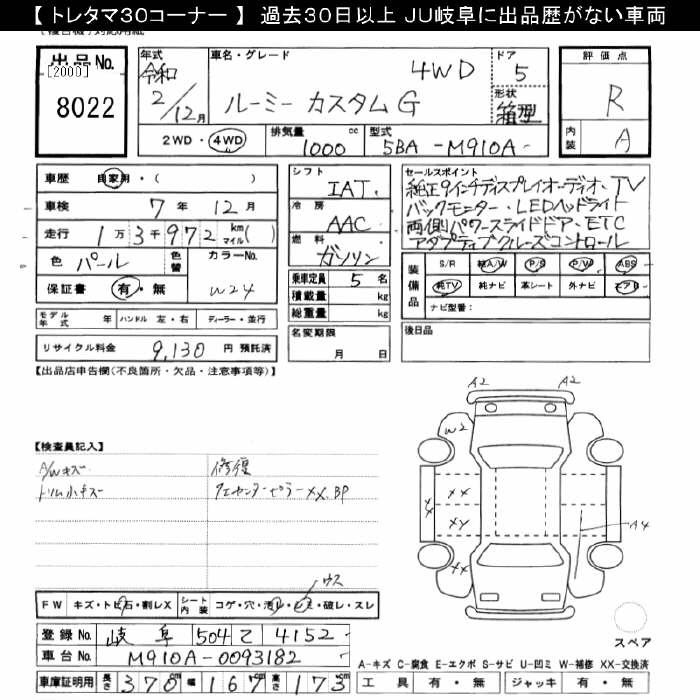 【 トレタマ30コーナー 】 過去30日以上 JU岐阜に出品歴がない車両
出品No.
[2000]
8022
年式 令和 2/12月
車名・グレード 4WD
ルーミー カスタムG
ドア 5
形状 箱型
2WD・4WD
排気量 1000 cc 型式 5BA -M910A-
評価点
R
内装 A
車歴 自家用・( )
車検 7年 12月
走行 1万 3千 9 7 2 km( マイル)
色 パール 色替 カラーNo.
保証書 有・無 W24
モデル年式 年 ハンドル 左・右 ディーラー・並行
リサイクル料金 9,130 円 預託済
シフト IAT
冷房 AAC
燃料 ガソリン
乗車定員 5 名
積載量 kg
総重量 kg
名変期限
月 日
セールスポイント
純正9インチディスプレイオーディオ・TV
バックモニター・LEDヘッドライト
両側パワースライドドア、ETC
アダプティブクルーズコントロール
装備品 S/R 純A/W P/S P/W ABS
純TV 純ナビ 革シート 外ナビ エアB
ナビ型番:
後日品
【出品店申告欄(不良箇所・欠品・注意事項等)】
【検査員記入】
A/Wキズ 修復
トリム小キズ
A2 A2
W2
XX
XX
XY
A4
XX
FW キズ・トビ石・割レX シート内装 コゲ・穴・汚レ・シミ・破レ・スレ
ウス
スペア
登録No. 岐阜 504 て 4152
車台No. M910A-0093182
A-キズ C-腐食 E-エクボ S-サビ U-凹ミ W-補修 XX-交換済
車庫証明用 長さ 370 cm 幅 167 cm 高さ 173 cm
工具 有・無 ジャッキ 有・無